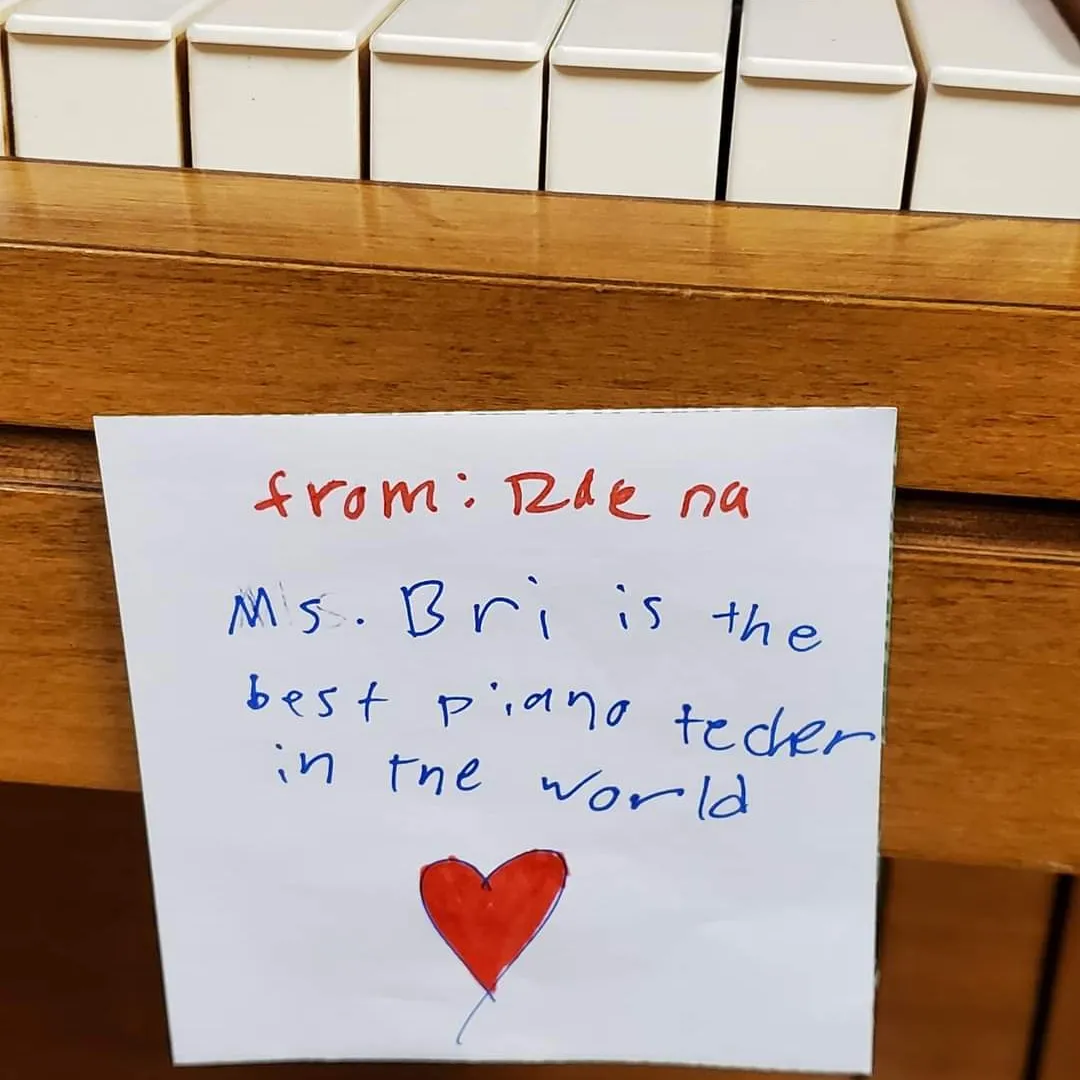 from: Rdena
Ms. Bri is the
best piano techer
in the world